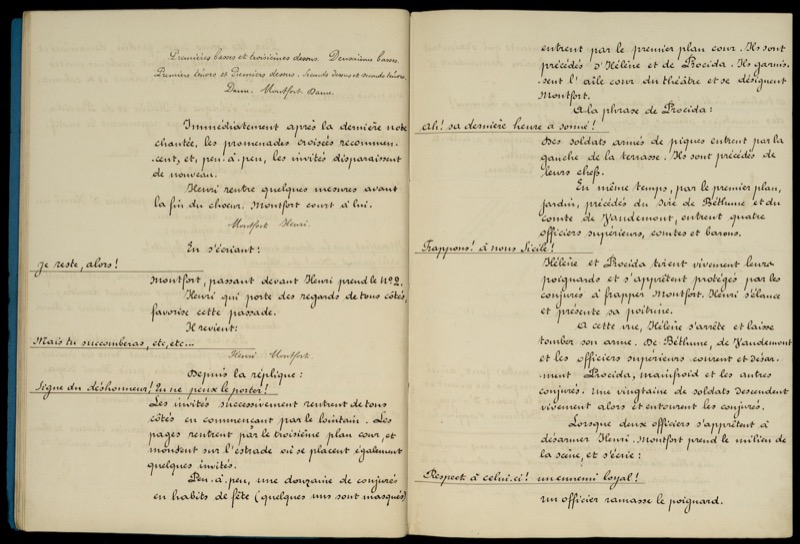 Premières basses et troisièmes dessus. Deuxièmes basses.
Premiers ténors et Premiers dessus. Seconds dessus et seconds ténors.
Dame. Montfort. Dame.
Immédiatement après la dernière note
chantée, les promenades croisées recommen-
-cent, et, peu-à-peu, les invités disparaissent
de nouveau.
Henri rentre quelques mesures avant
la fin du chœur. Montfort court à lui.
Montfort Henri.
En s'écriant:
Je reste, alors!
Montfort, passant devant Henri prend le Nº 2.
Henri qui porte des regards de tous côtés,
favorise cette passade.
Il revient:
Mais tu succomberas, etc, etc...
Henri. Montfort.
Depuis la réplique:
Signe du déshonneur! Tu ne peux le porter!
Les invités successivement rentrent de tous
côtés en commençant par le lointain. Les
pages rentrent par le troisième plan cour, et
montent sur l'estrade où se placent également
quelques invités.
Peu-à-peu, une douzaine de conjurés
en habits de fête (quelques uns sont masqués)
entrent par le premier plan cour. Ils sont
précédés d'Hélène et de Procida. Ils garnis-
-sent l'aile cour du théâtre et se désignent
Montfort.
A la phrase de Procida:
Ah! sa dernière heure a sonné!
Des soldats armés de piques entrent par la
gauche de la terrasse. Ils sont précédés de
leurs chefs.
En même temps, par le premier plan,
jardin, précédés du Sire de Béthune et du
comte de Vaudemont, entrent quatre
officiers supérieurs, comtes et barons.
Frappons! à nous Sicile!
Hélène et Procida tirent vivement leurs
poignards et s'apprêtent protégés par les
conjurés à frapper Montfort. Henri s'élance
et présente sa poitrine.
A cette vue, Hélène s'arrête et laisse
tomber son arme. De Béthune, de Vaudemont
et les officiers supérieurs courent et désar-
-ment Procida, Mainfroid et les autres
conjurés. Une vingtaine de soldats descendent
vivement alors et entourent les conjurés.
Lorsque deux officiers s'apprêtent à
désarmer Henri. Montfort prend le milieu de
la scène, et s'écrie:
Respect à celui-ci! un ennemi loyal!
Un officier ramasse le poignard.